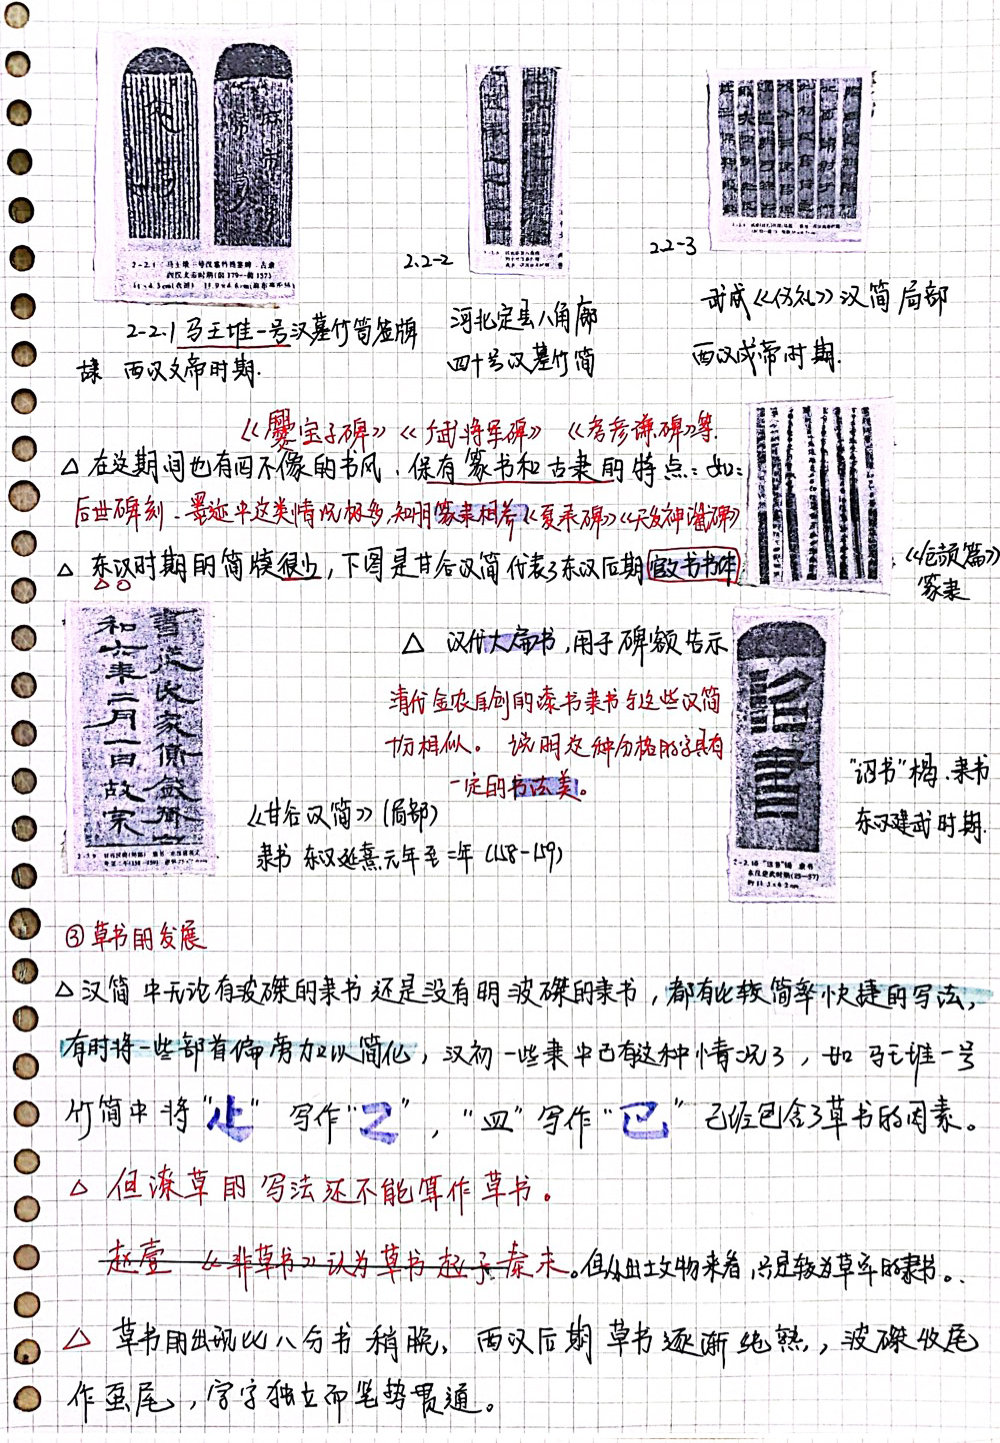 2-2.1 马王堆一号汉墓竹简签牌
隶 西汉文帝时期.
2.2-2
河北定县八角廊
四十号汉墓竹简
2.2-3
武威《仪礼》汉简局部
西汉成帝时期.
《爨宝子碑》 《广武将军碑》 《 碑》等.
△ 在这期间也有四不像的书风、保有篆书和古隶的特点：如：
后世碑刻、墨迹中这类情况极多,如明篆隶相参《夏承碑》《天发神谶碑》
△ 东汉时期的简牍很少，下图是甘谷汉简代表了东汉后期官文书书体
《仓颉篇》
篆隶
△ 汉代大扁书,用于碑额告示
清代金农自创的漆书隶书与这些汉简
十分相似。 说明这种分格的字具有
一定的书法美。
"诏书"楬.隶书
东汉建武时期.
《甘谷汉简》(局部)
隶书 东汉延熹元年至二年 (158-159)
和六年二月一日故宗
2-2.10 "诏书"楬 隶书
东汉建武时期(25—57)
③ 草书的发展
△ 汉简中无论有波磔的隶书还是没有明波磔的隶书，都有比较简率快捷的写法，
有时将一些部首偏旁加以简化，汉初一些隶中已有这种情况了，如马王堆一号
竹简中将"辶" 写作"乙"，"皿"写作"已" 已经包含了草书的因素。
△ 但潦草的写法还不能算作草书。
赵壹 《非草书》认为草书起于秦末。但从出土文物来看,只是较为草率的隶书。
△ 草书的出现比八分书稍晚，西汉后期草书逐渐纯熟，波磔收尾
作虿尾，字字独立而笔势贯通。